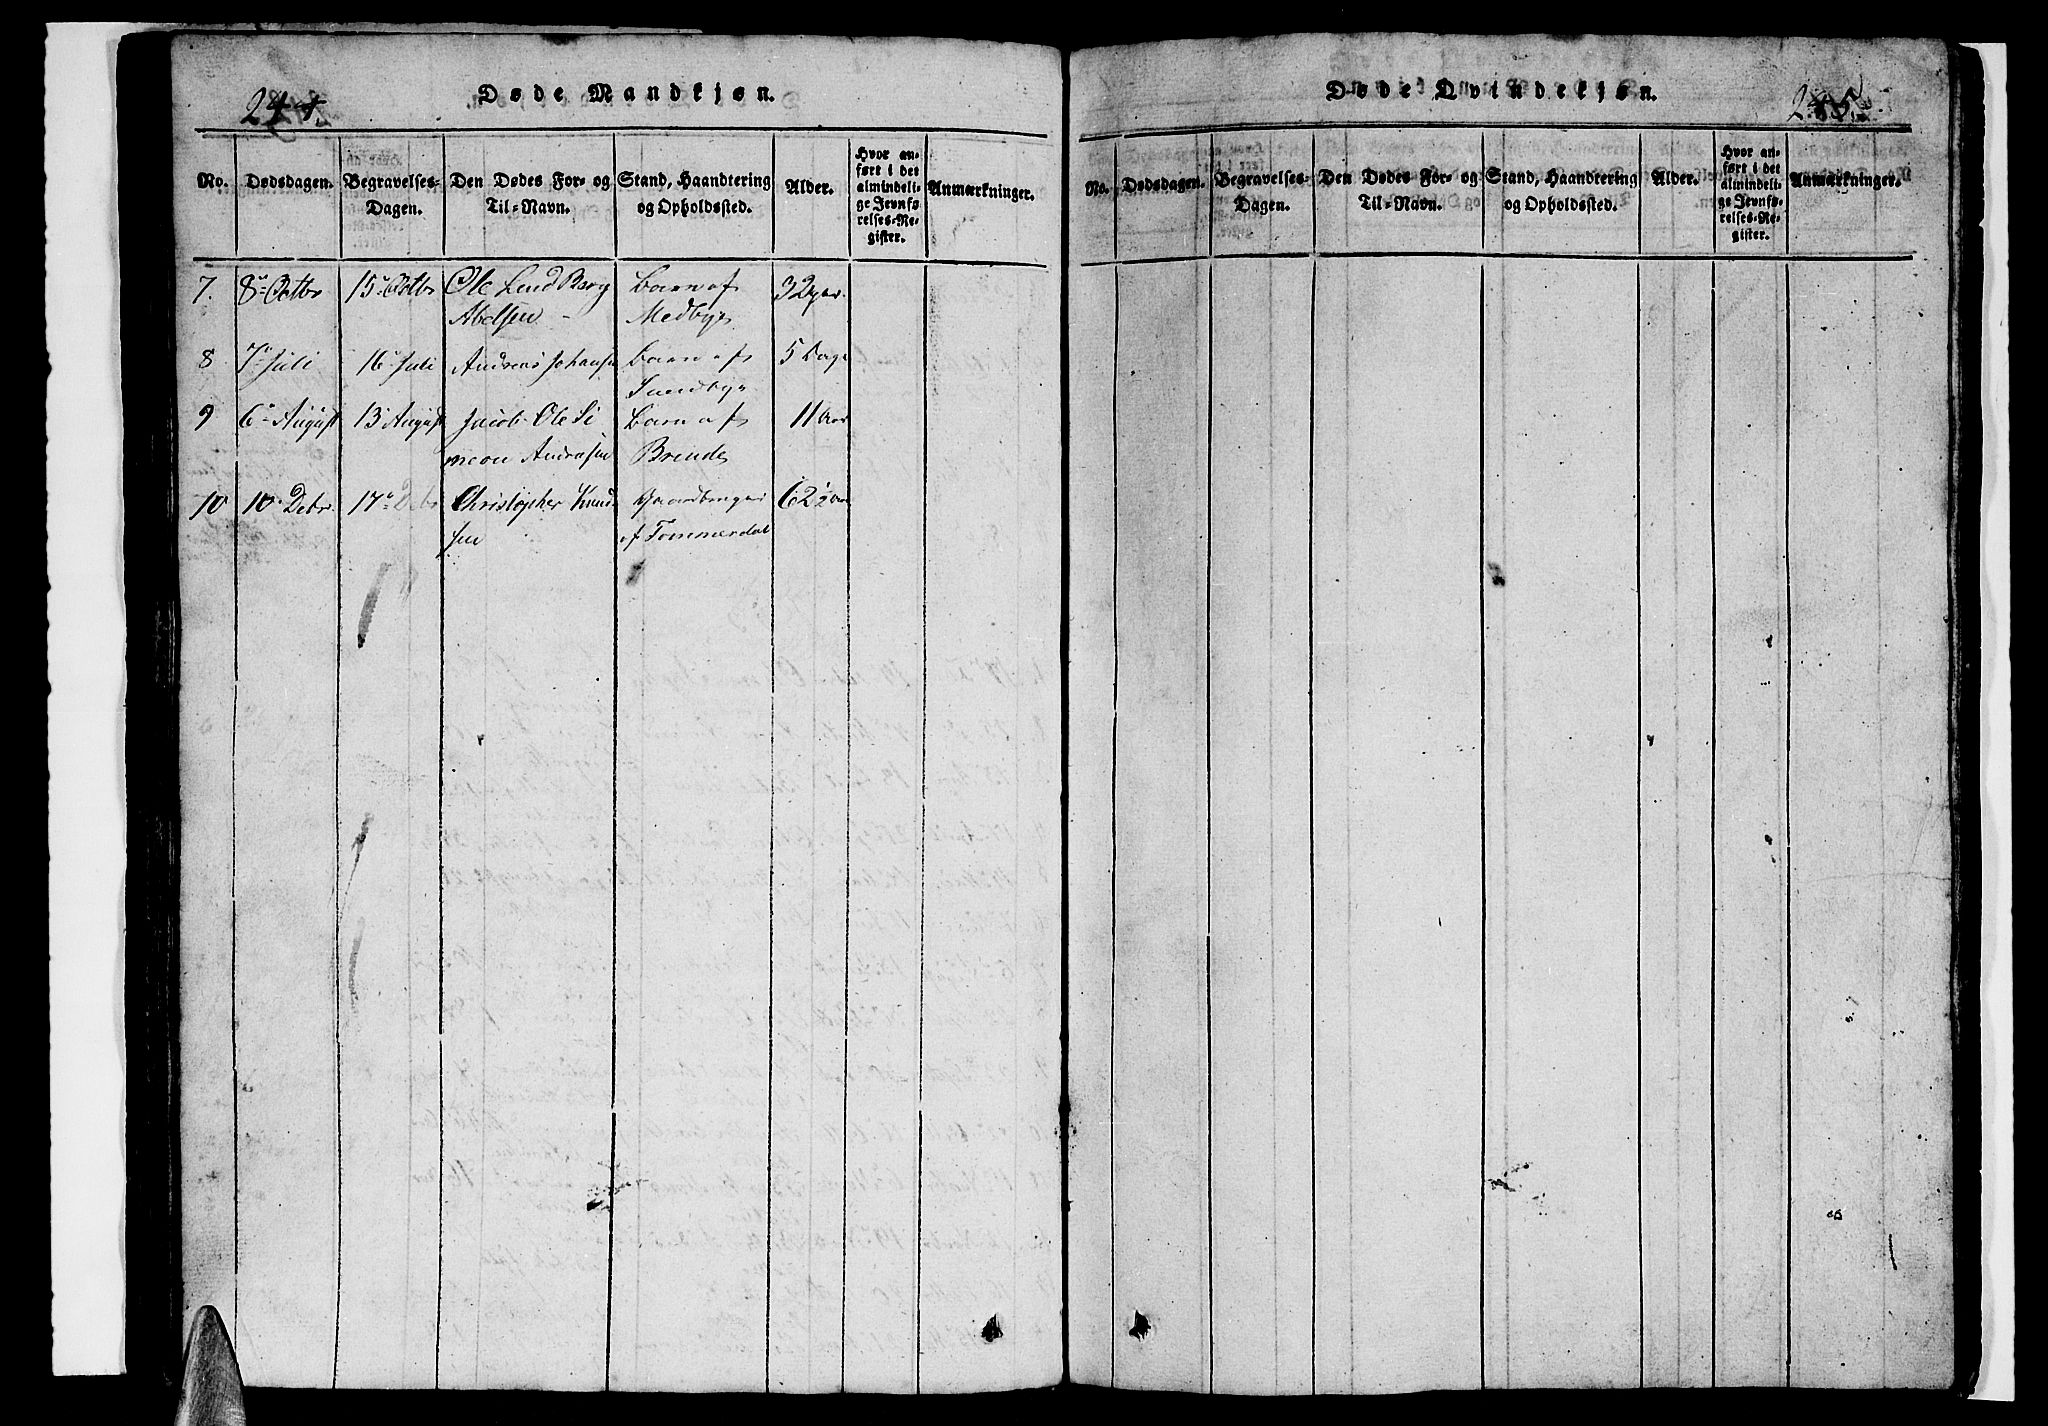 244.
Døde Mandkjøn.
No.
Dødsdagen.
Begravelses-
Dagen.
Den Dødes For- og
Til-Navn.
Stand, Haandtering
og Opholdssted.
Alder.
Hvor an-
ført i det
almindeli-
ge Jevnfø-
relses-Re-
gister.
Anmærkninger.
7. 8de Octbr 15de Octbr Ole Lund Berg Barn af
Abelsen - Medbye
8 7de Juli 16de Juli Andreas Johansen Barn af 5 Dage
Sundbye
9 6te August 13 August Jacob Ole Si Barn af 11 Aar
meon Andrasen Breude
10 10 Debr. 17de Debr Christopher Knud Gaardbruger 62½ Aar
sen af Tommerdal
245.
Døde Qvindekjøn.
No.
Dødsdagen.
Begravelses-
Dagen.
Den Dødes For- og
Til-Navn.
Stand, Haandtering
og Opholdssted.
Alder.
Hvor an-
ført i det
almindeli-
ge Jevnfø-
relses-Re-
gister.
Anmærkninger.